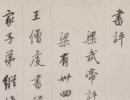 書評
梁武帝評
梁有卅四
王僧虔書
家子弟縱